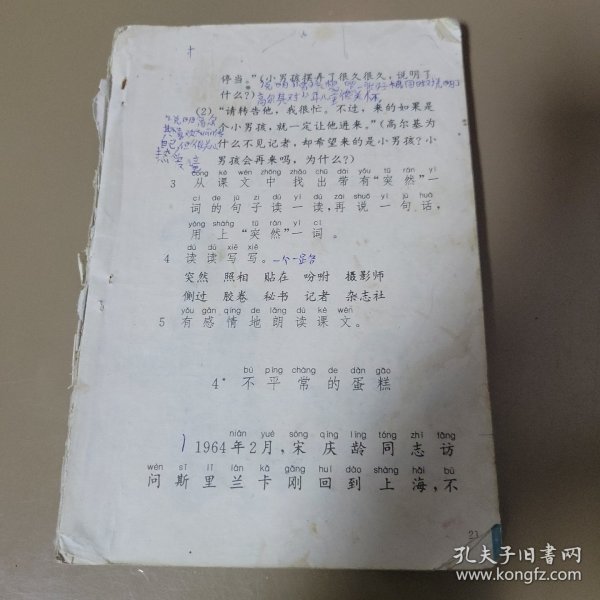 停当。”(小男孩摆弄了很久很久,说明了
什么?)
(2)“请转告他,我很忙。不过,来的如果是
个小男孩,就一定让他进来。”(高尔基为
什么不见记者,却希望来的是小男孩?小
男孩会再来吗,为什么?)
cóng kè wén zhōng zhǎo chū dài yǒu tū rán yī
3 从课文中找出带有“突然”一
cí de jù zi dú yi dú zài shuō yī jù huà
词的句子读一读,再说一句话,
yòng shàng tū rán yī cí
用上“突然”一词。
dú dú xiě xiě
4 读读写写。
突然 照相 贴在 吩咐 摄影师
侧过 胶卷 秘书 记者 杂志社
yǒu gǎn qíng de lǎng dú kè wén
5 有感情地朗读课文。
bù píng cháng de dàn gāo
4* 不平常的蛋糕
nián yuè sòng qìng líng tóng zhì fǎng
1964年2月,宋庆龄同志访
wèn sī lǐ lán kǎ gāng huí dào shàng hǎi bù
问斯里兰卡刚回到上海,不
21
孔夫子旧书网
www.kongfz.com